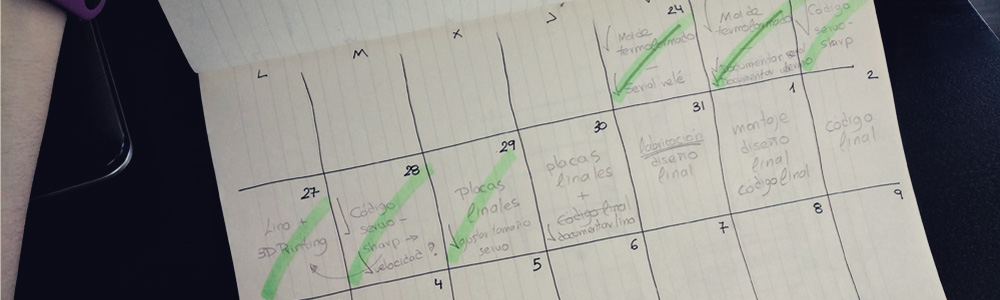 L M X J
24
Molde
termoformado
Serial vele
Molde
termoformado
Documentar
Documentar
Código
servo-
sharp
27
Lino +
3D Printing
28
Código
servo-
sharp →
velocidad?
29
placas
finales
ajustar tamaño
servo
30
placas
finales
+
código final
documentar lino
31
fabricación
diseño
final
1
montaje
diseño
final
código final
2
código
final
4 5 6 7 8 9